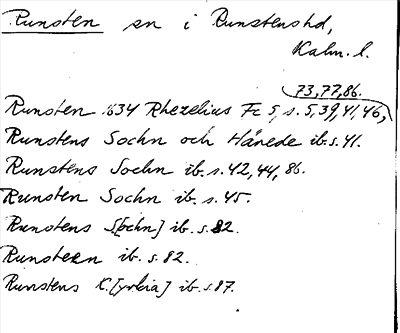 Runsten sn i Runstenshd,
Kalm. l.
73,77,86.
Runsten 1634 Rhezelius Fc 5, s. 5,39,41,46,
Runstens Sochn och Härede ib. s. 41.
Runstens Sochn ib. s. 42, 44, 86.
Runsten Sochn ib. s. 45.
Runstens S[ochn] ib. s. 82.
Runsteen ib. s. 82.
Runstens K.[yrkia] ib. s. 87.